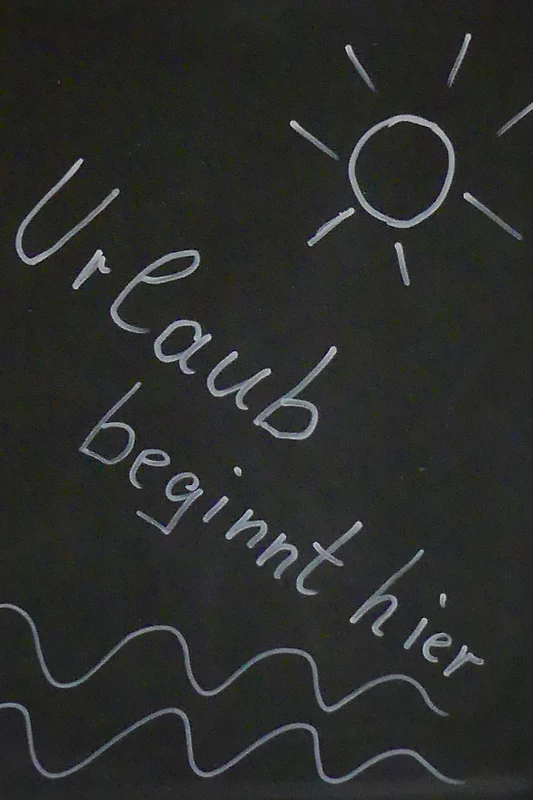 Urlaub
beginnt hier